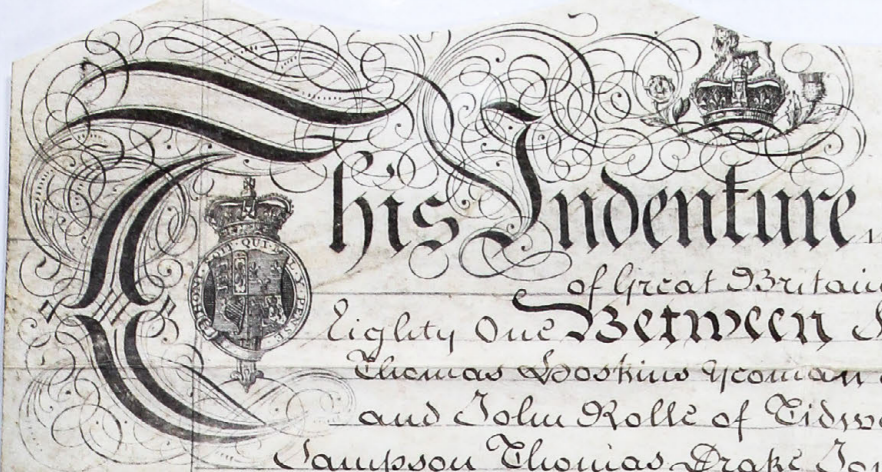 This Indenture
of Great Britain
Eighty One Between
Thomas Hoskins Yeoman
and John Rolle of Tidw
Sampson Thomas Drake
HONI SOIT QUI MAL Y PENSE